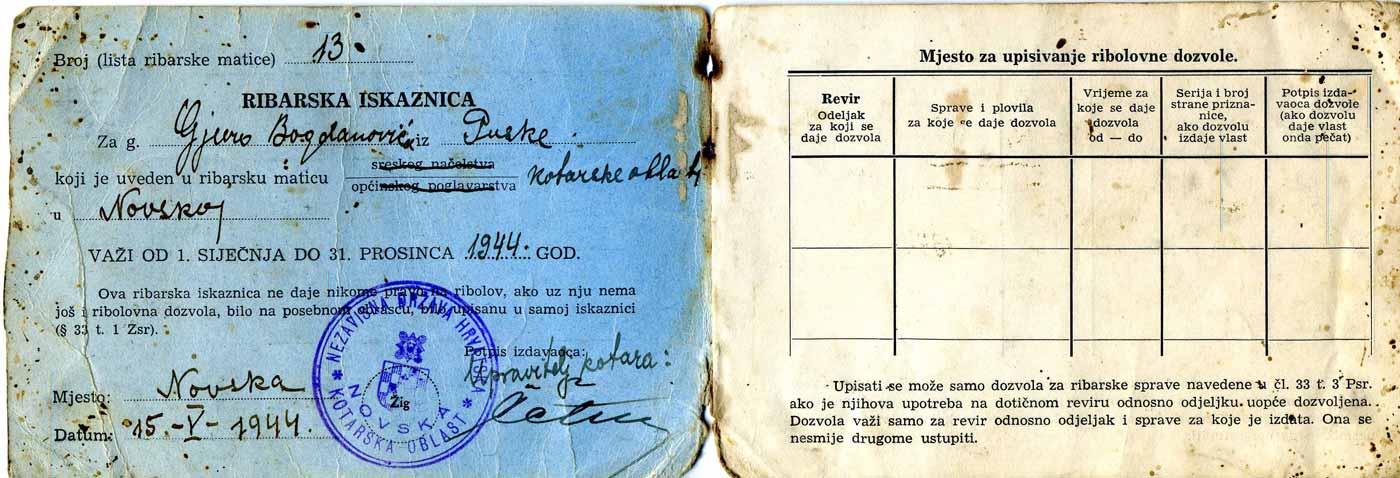 Broj (lista ribarske matice) 13.
RIBARSKA ISKAZNICA
Za g. Gjuro Bogdanović iz Puske
koji je uveden u ribarsku maticu sreskog načelstva
općinskog poglavarstva kotarske oblasti
u Novskoj
VAŽI OD 1. SIJEČNJA DO 31. PROSINCA 1944. GOD.
Ova ribarska iskaznica ne daje nikome pravo na ribolov, ako uz nju nema
još i ribolovna dozvola, bilo na posebnom obrascu, bilo upisanu u samoj iskaznici
(§ 33 t. 1 Žsr).
Potpis izdavaoca:
Upravitelj kotara:
Mjesto: Novska
Datum: 15.-V-1944.
Žig
NEZAVISNA DRŽAVA HRVATSKA
KOTARSKA OBLAST
NOVSKA
Mjesto za upisivanje ribolovne dozvole.
Revir
Odeljak
za koji se
daje dozvola
Sprave i plovila
za koje se daje dozvola
Vrijeme za
koje se daje
dozvola
od — do
Serija i broj
strane prizna-
nice,
ako dozvolu
izdaje vlast
Potpis izda-
vaoca dozvole
(ako dozvolu
daje vlast
onda pečat)
Upisati se može samo dozvola za ribarske sprave navedene u čl. 33 t. 3 Psr.
ako je njihova upotreba na dotičnom reviru odnosno odjeljku. uopće dozvoljena.
Dozvola važi samo za revir odnosno odjeljak i sprave za koje je izdata. Ona se
nesmije drugome ustupiti.